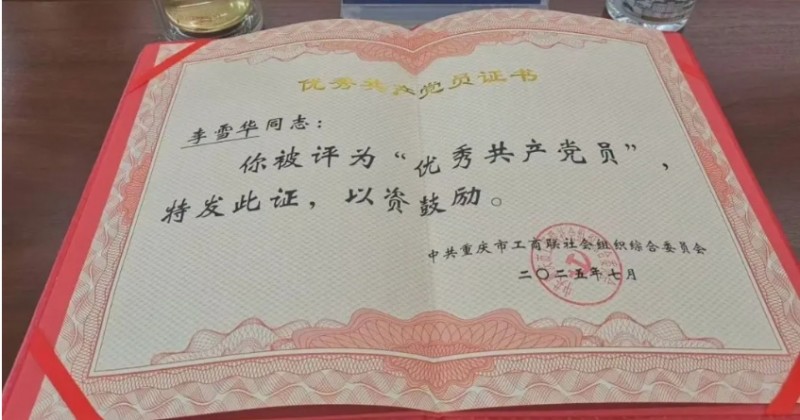 优秀共产党员证书
李雪华同志：
你被评为“优秀共产党员”，
特发此证，以资鼓励。
中共重庆市工商联社会组织综合委员会
二〇二五年七月